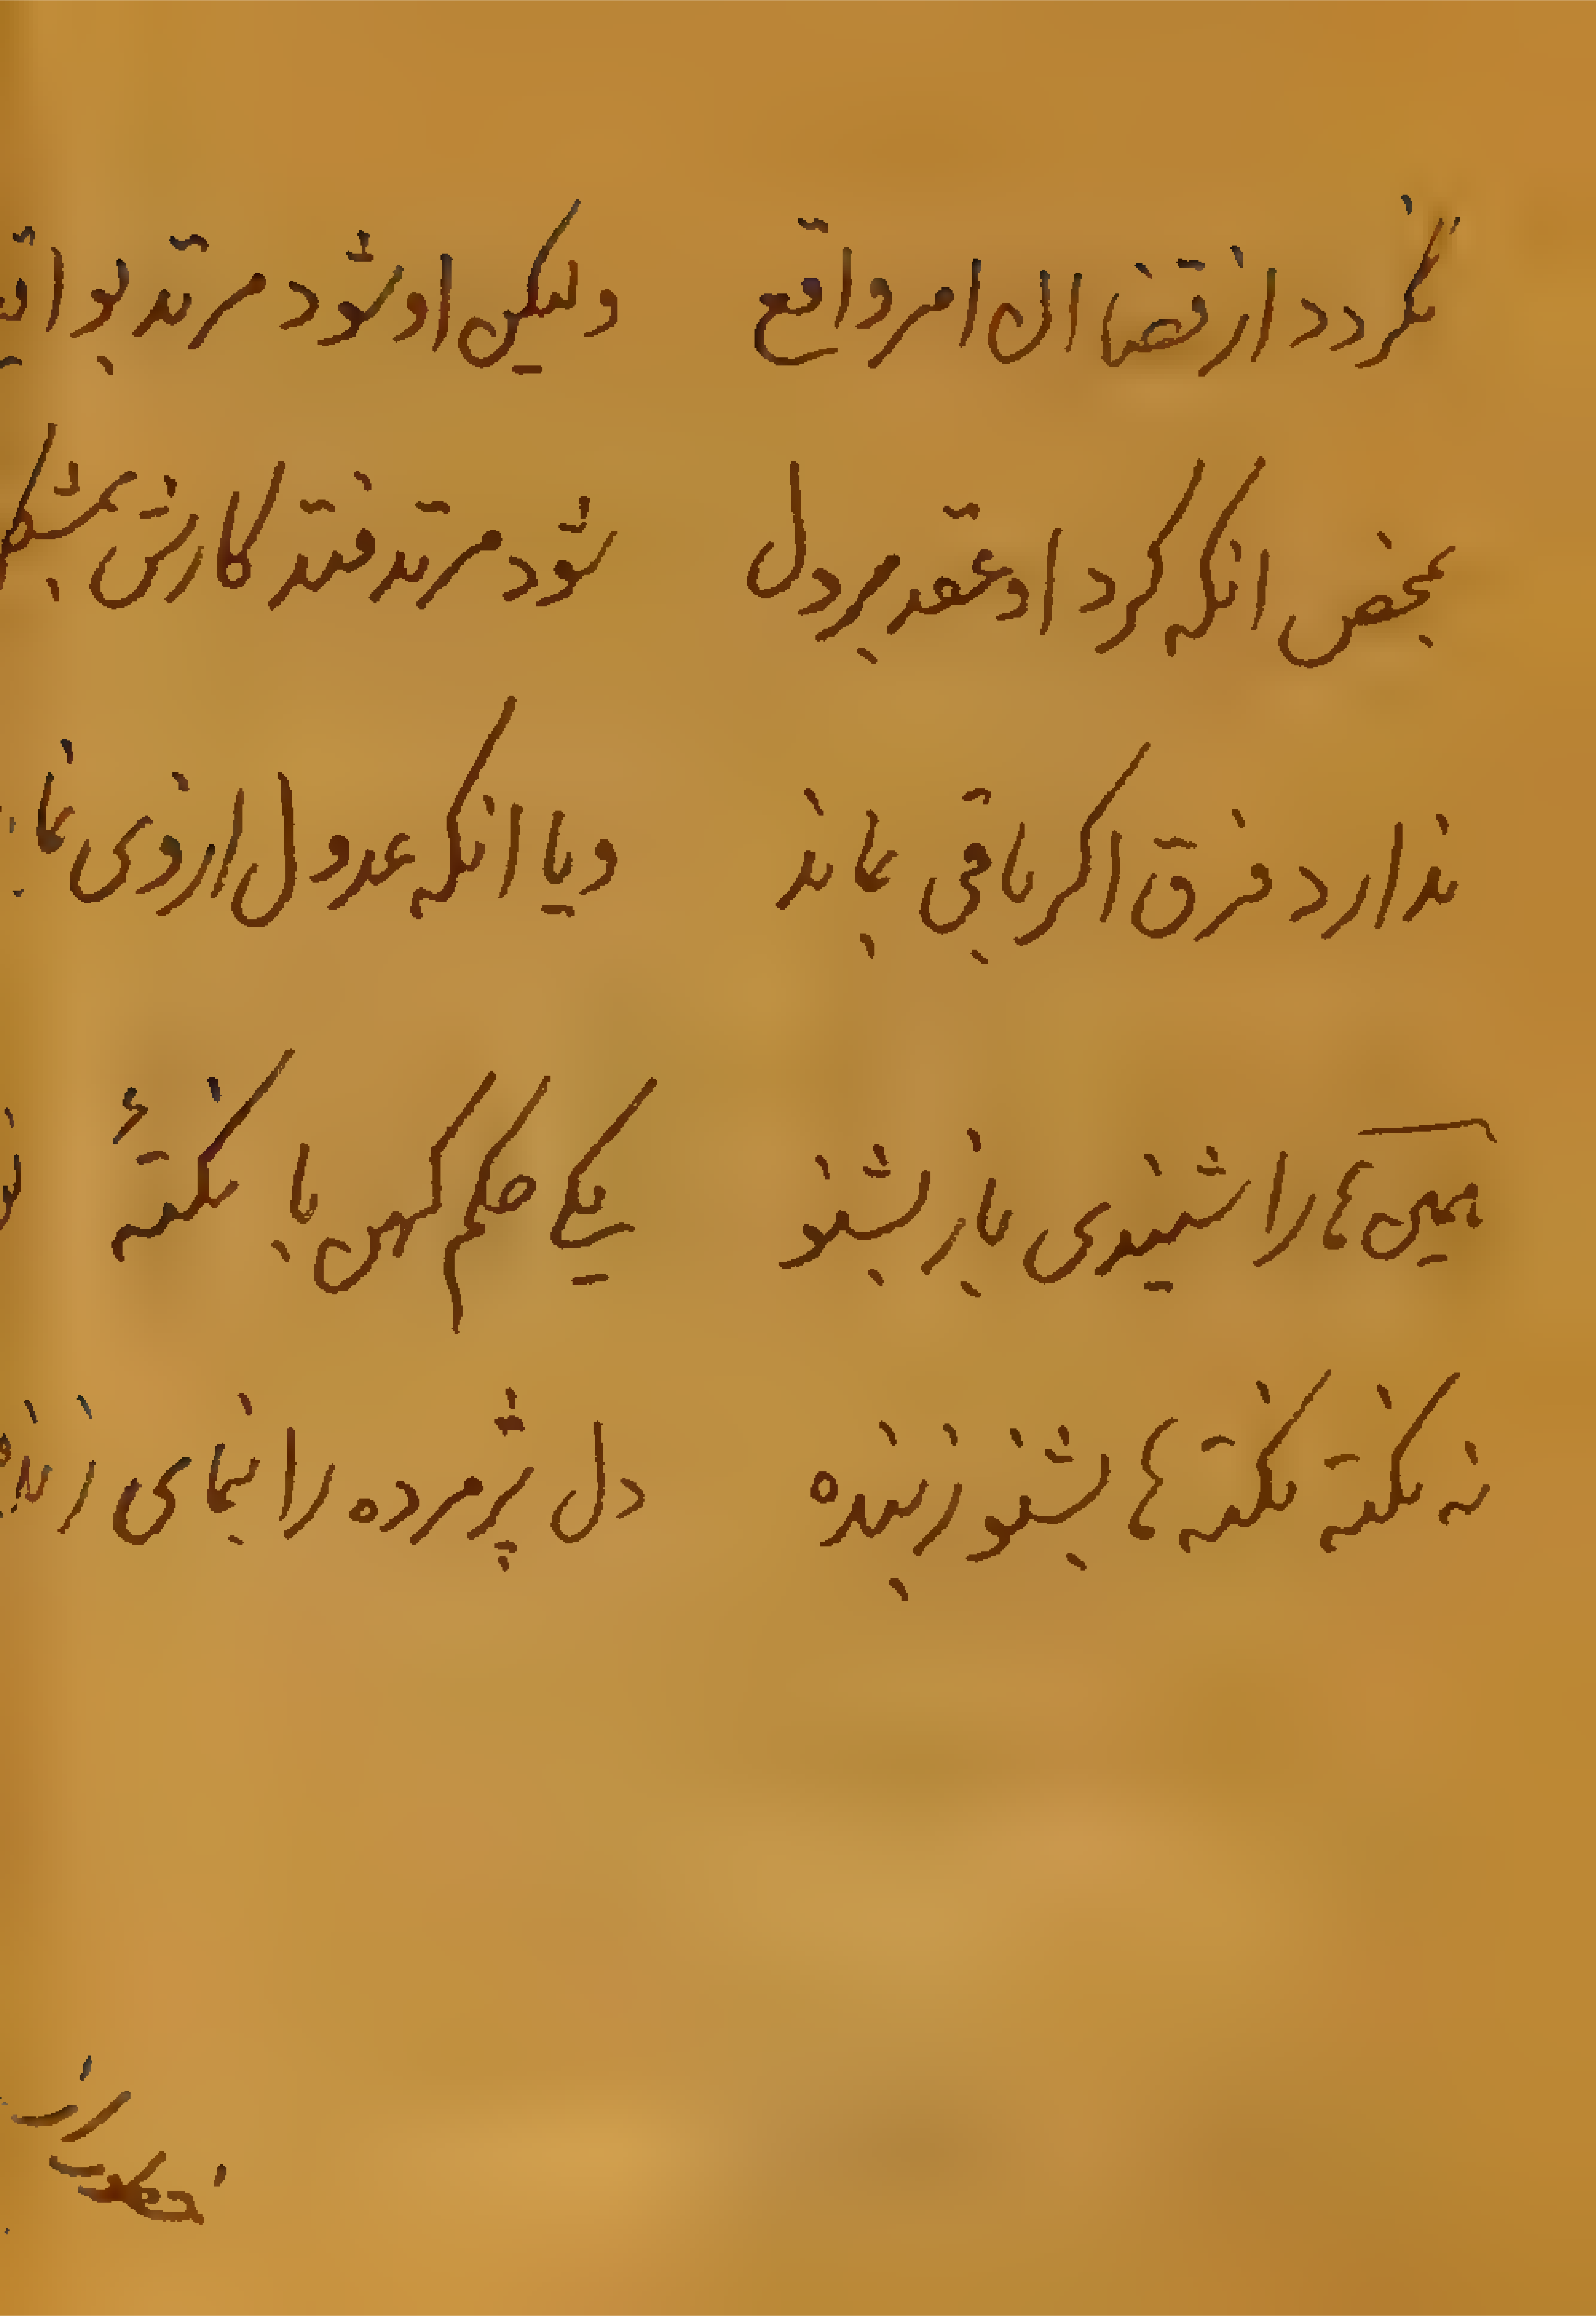 نکردد از قضا ان امر واقع ولیکن او شود مرتد بو
بمحض انکه کرد او عقد بر دل شود مرتد فتد کارش
ندارد فرق اکر باقی بماند ویا انکه عدول از وی
همین ها را شنیدی باز بشنو یکے حکم کهن با نکتهٔ
نه نکته نکته ها بشنو زبنده دل پژمرده را بنمای